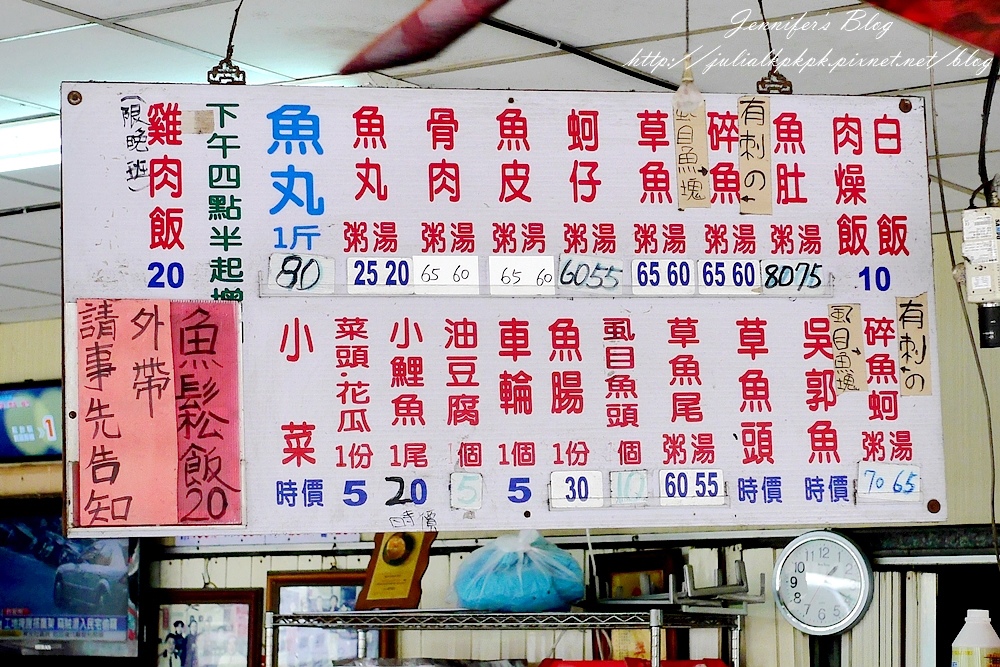 Jennifer's Blog
http://julialkpkpk.pixnet.net/blog
白飯
肉燥飯
10
魚肚
粥湯
8075
有刺の
碎魚
粥湯
65 60
虱目魚塊
草魚
粥湯
65 60
蚵仔
粥湯
6055
魚皮
粥湯
65 60
骨肉
粥湯
65 60
魚丸
粥湯
25 20
魚丸
1斤
80
下午四點半起增
雞肉飯
20
(限晚班)
有刺の
碎魚蚵
粥湯
70 65
虱目魚塊
吳郭魚
時價
草魚頭
時價
草魚尾
粥湯
60 55
虱目魚頭
個
10
魚腸
1份
30
車輪
1個
5
油豆腐
個
5
小鯉魚
1尾
20
時價
菜頭·花瓜
1份
5
小菜
時價
魚鬆飯20
外帶
請事先告知